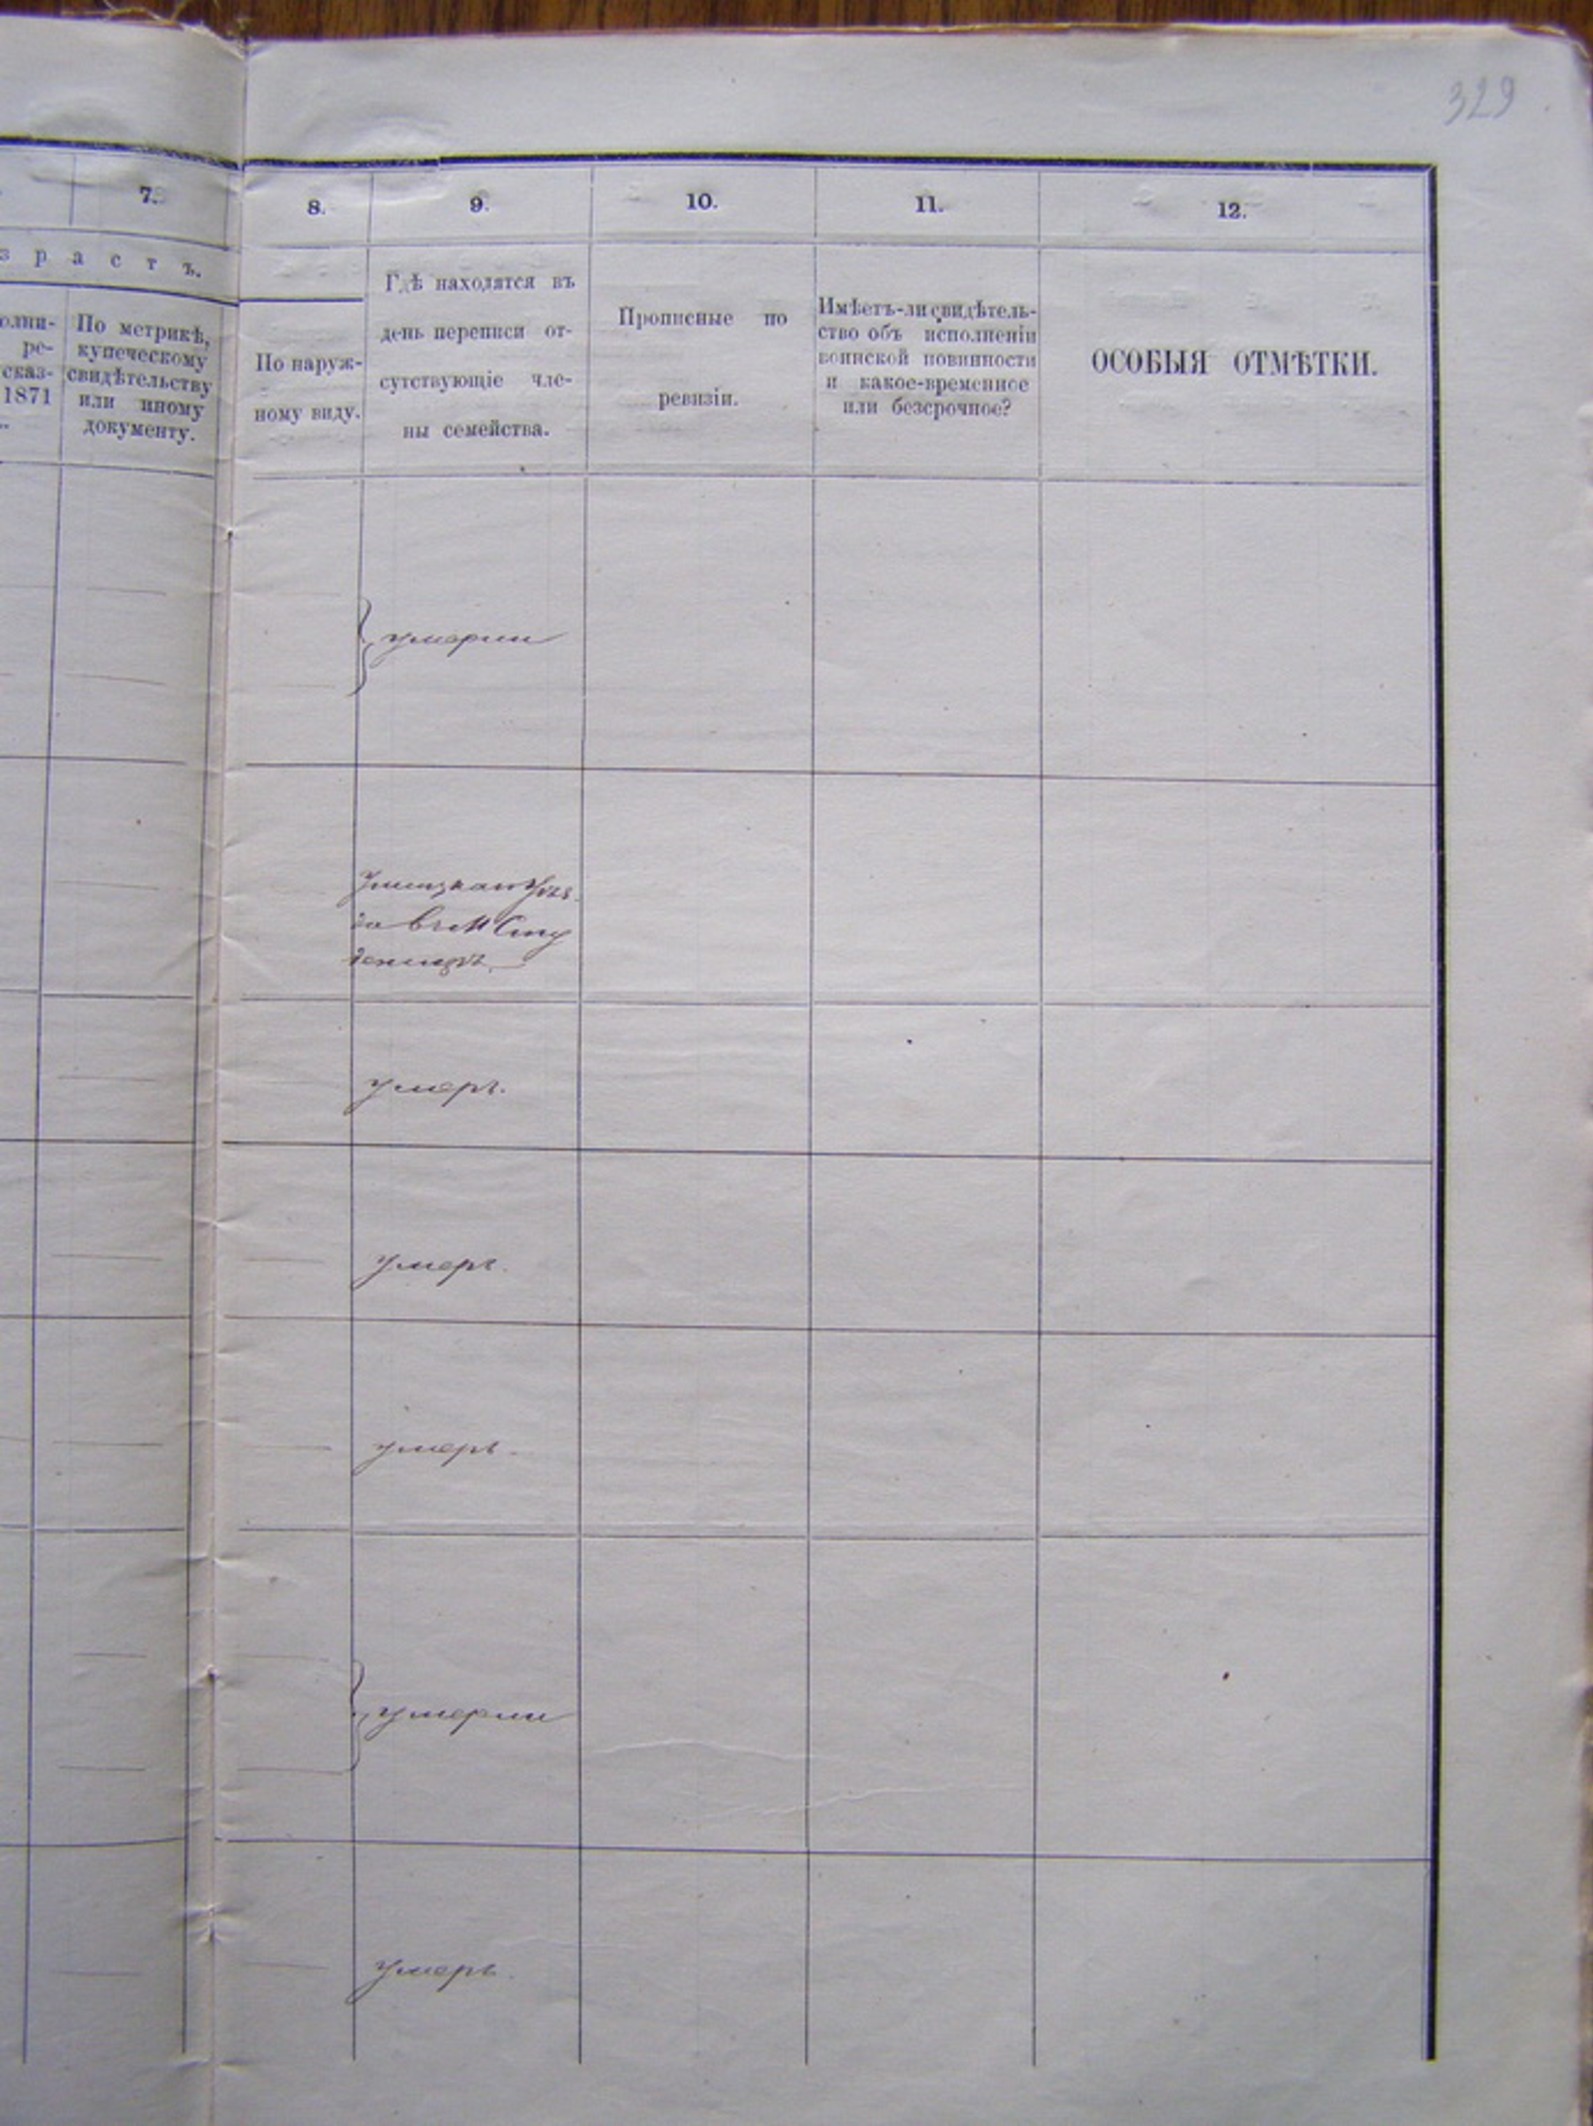 329
7.
8.
9.
10.
11.
12.
з р а с т ъ.
олни-
ре-
сказ-
1871
По метрикѣ,
купеческому
свидѣтельству
или иному
документу.
По наруж-
ному виду.
Гдѣ находятся въ
день переписи от-
сутствующіе чле-
ны семейства.
Прописные по
ревизіи.
Имѣетъ-ли свидѣтель-
ство объ исполненіи
воинской повинности
и какое-временное
или безсрочное?
ОСОБЫЯ ОТМѢТКИ.
умерли
умеръ.
умеръ.
умеръ.
умерли
умеръ.